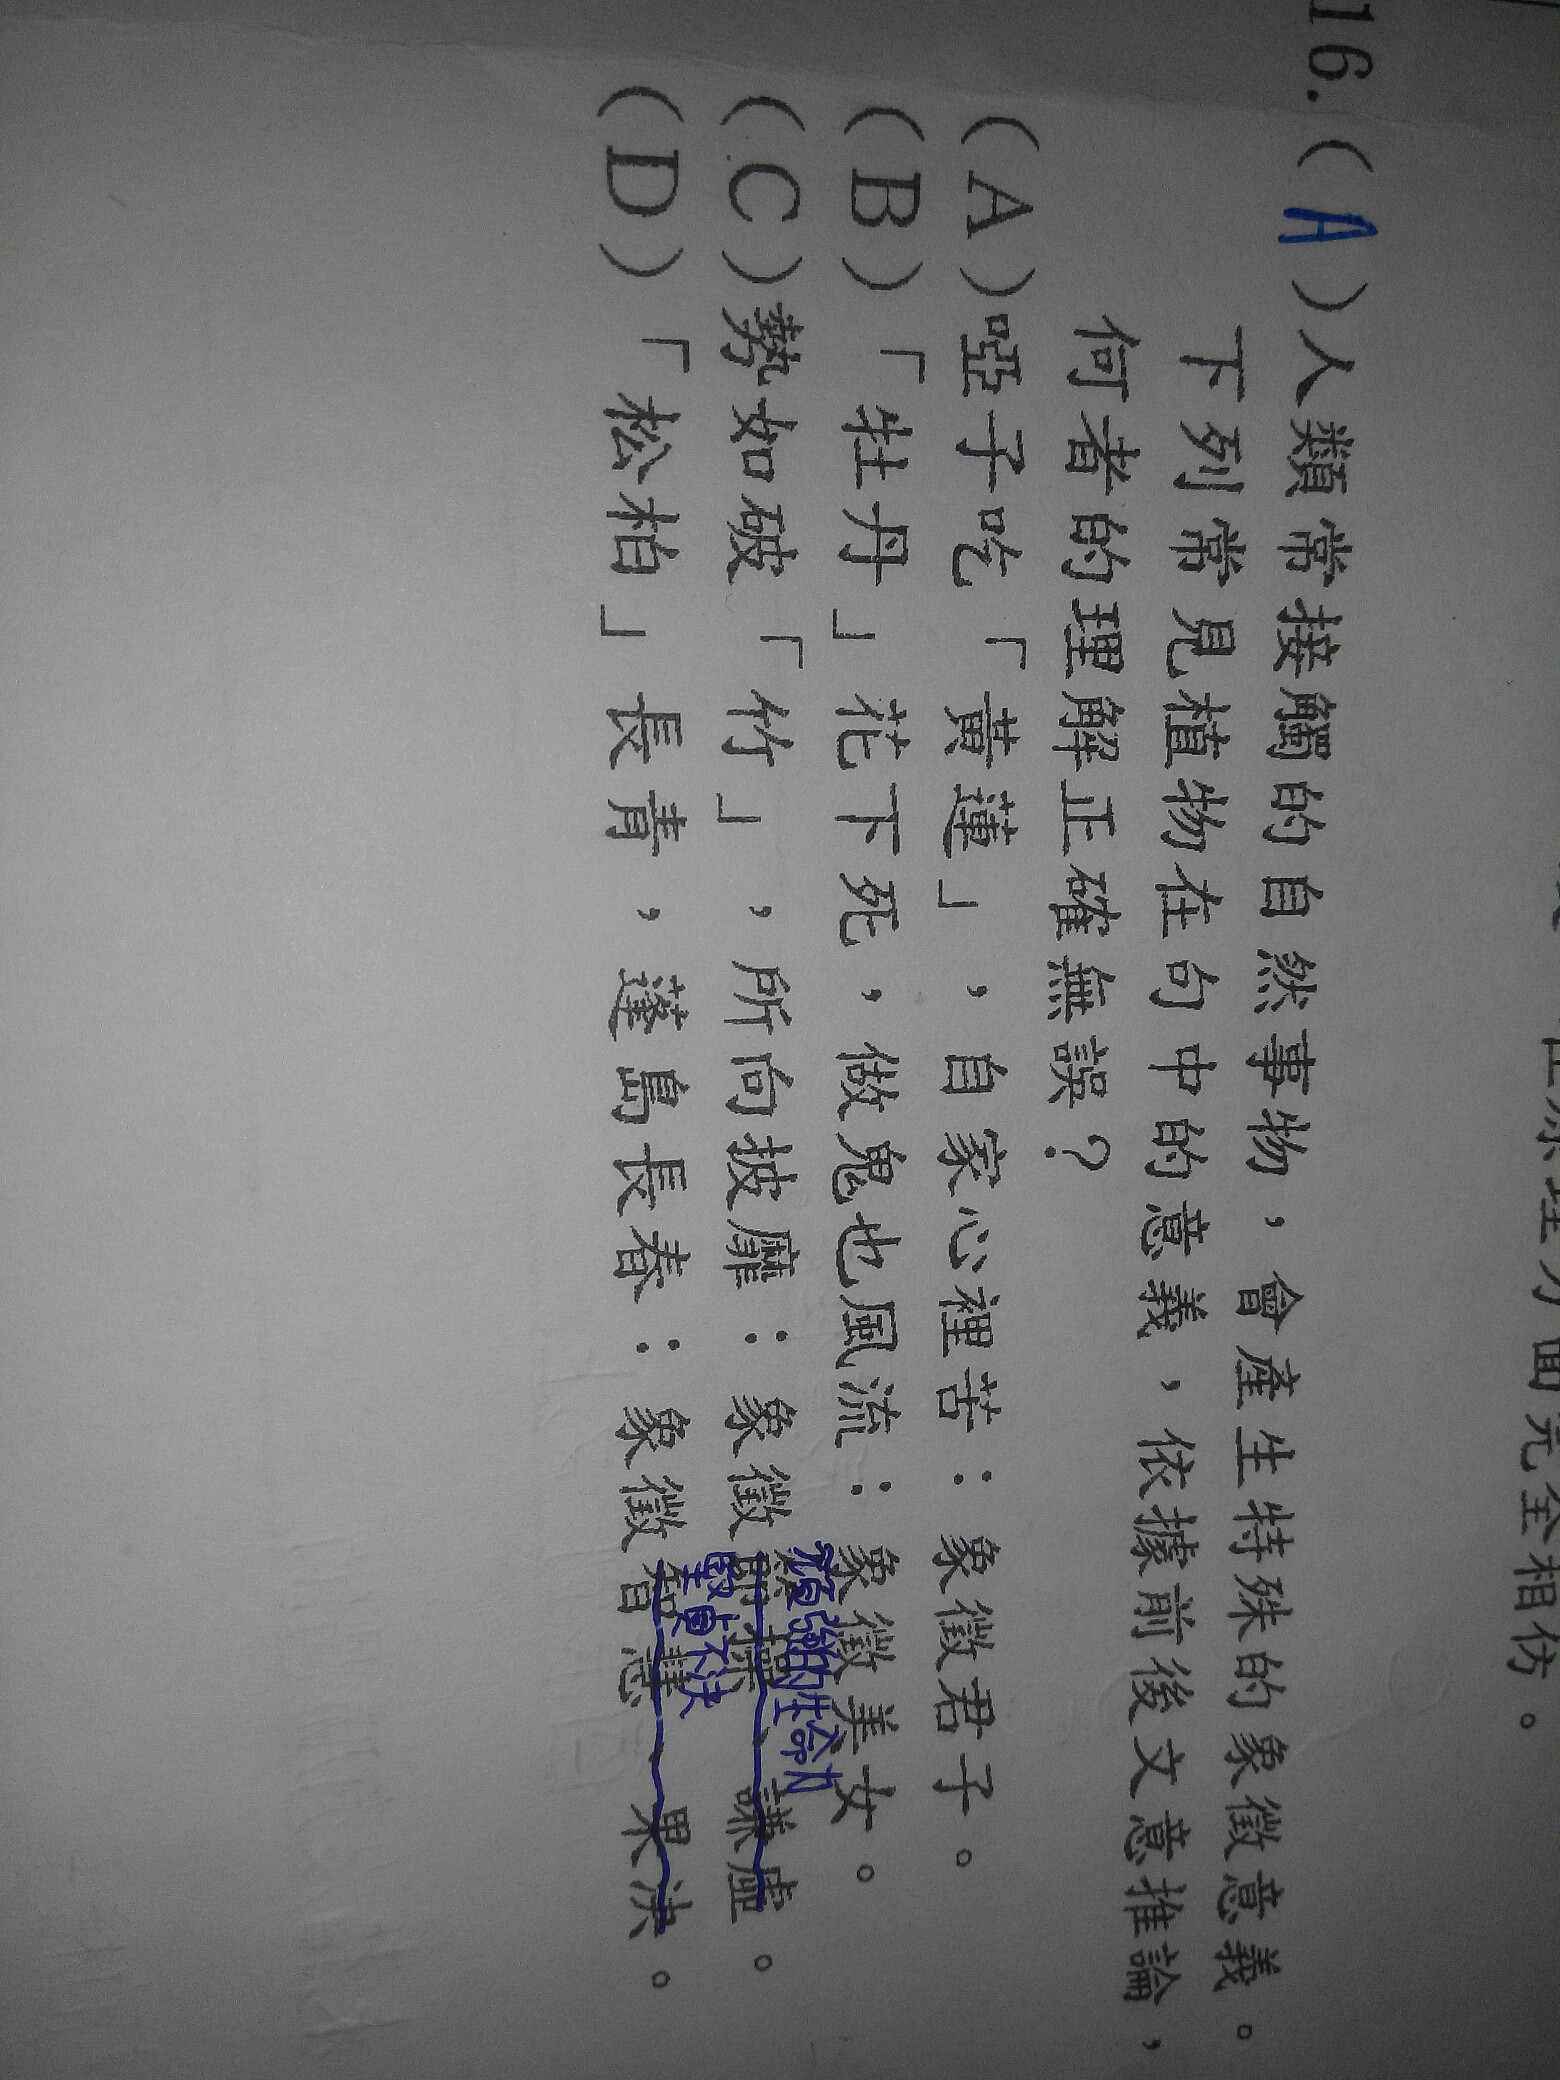 16.( A )人類常接觸的自然事物，會產生特殊的象徵意義。
下列常見植物在句中的意義，依據前後文意推論，
何者的理解正確無誤？
(A)啞子吃「黃蓮」，自家心裡苦：象徵君子。
(B)「牡丹」花下死，做鬼也風流：象徵美女。
頑強的生命力
(C)勢如破「竹」，所向披靡：象徵節操、謙虛。
堅貞不決
(D)「松柏」長青，蓬島長春：象徵智慧、果決。
方面完全相仿。